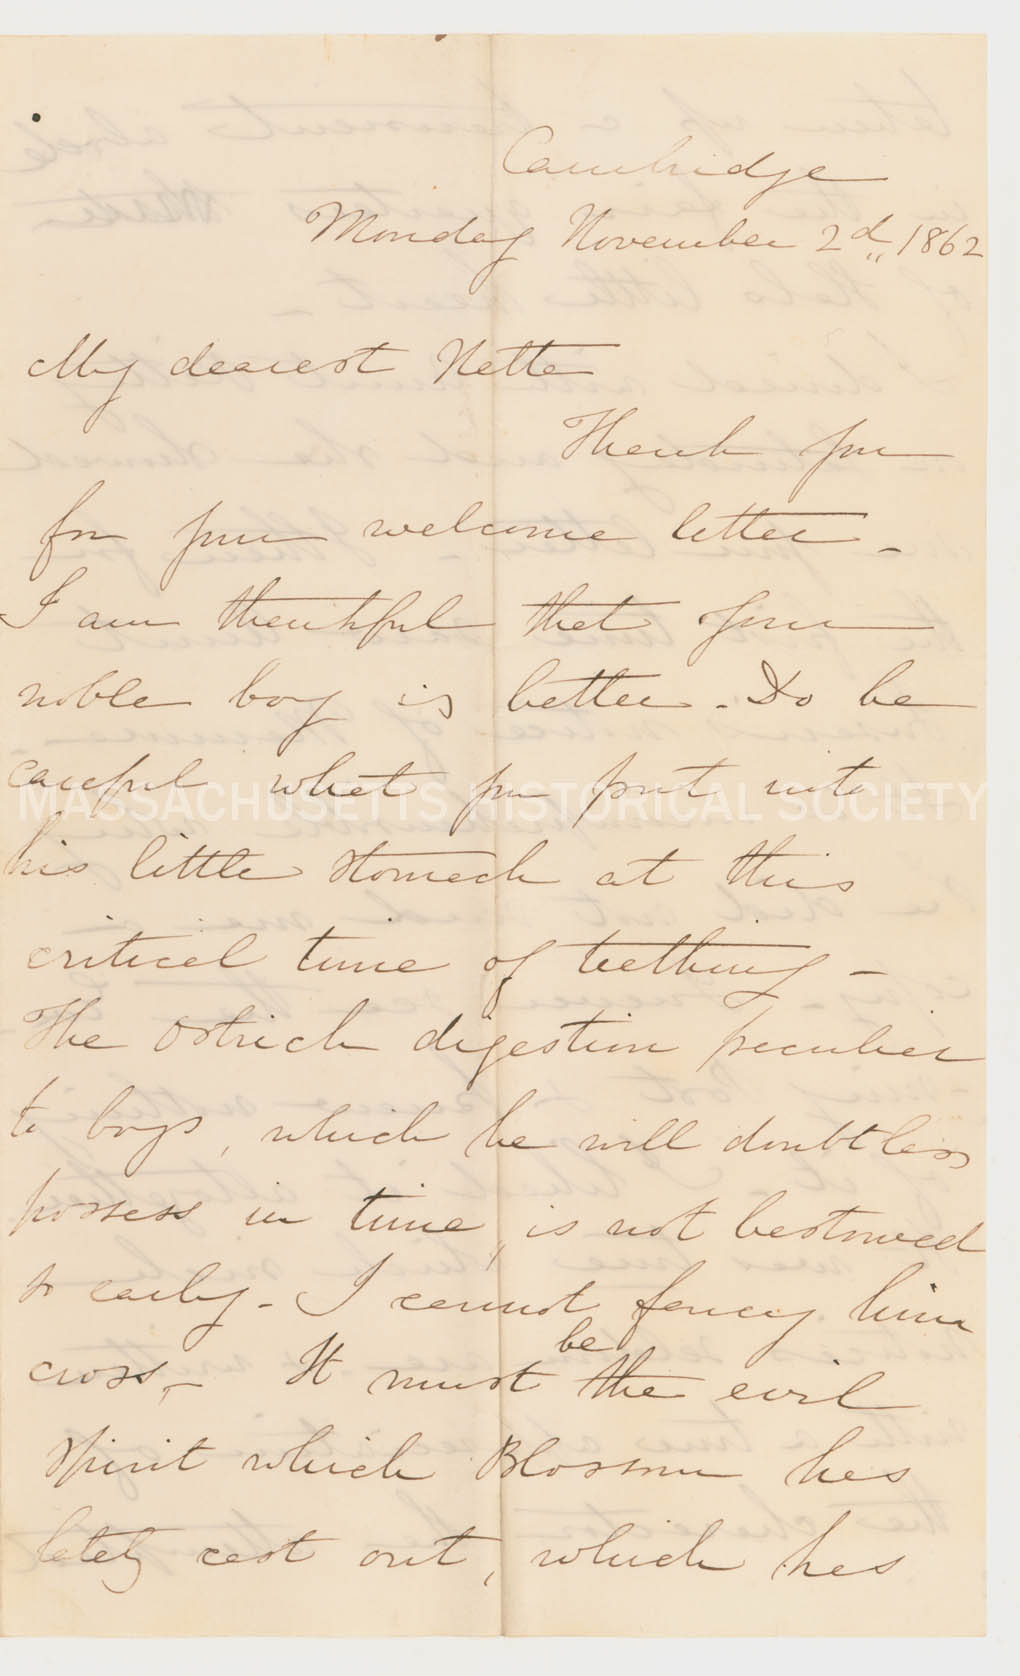 Cambridge
Monday November 2d, 1862
My dearest Nette
Thank you
for your welcome letter -
I am thankful that your
noble boy is better. Do be
careful what you put into
MASSACHUSETTS HISTORICAL SOCIETY
his little stomach at this
critical time of teething -
The Ostrich digestion peculiar
to boys, which he will doubtless
possess in time, is not bestowed
so early - I cannot fancy him
cross, - It must be the evil
spirit which Blossom has
lately cast out, which has